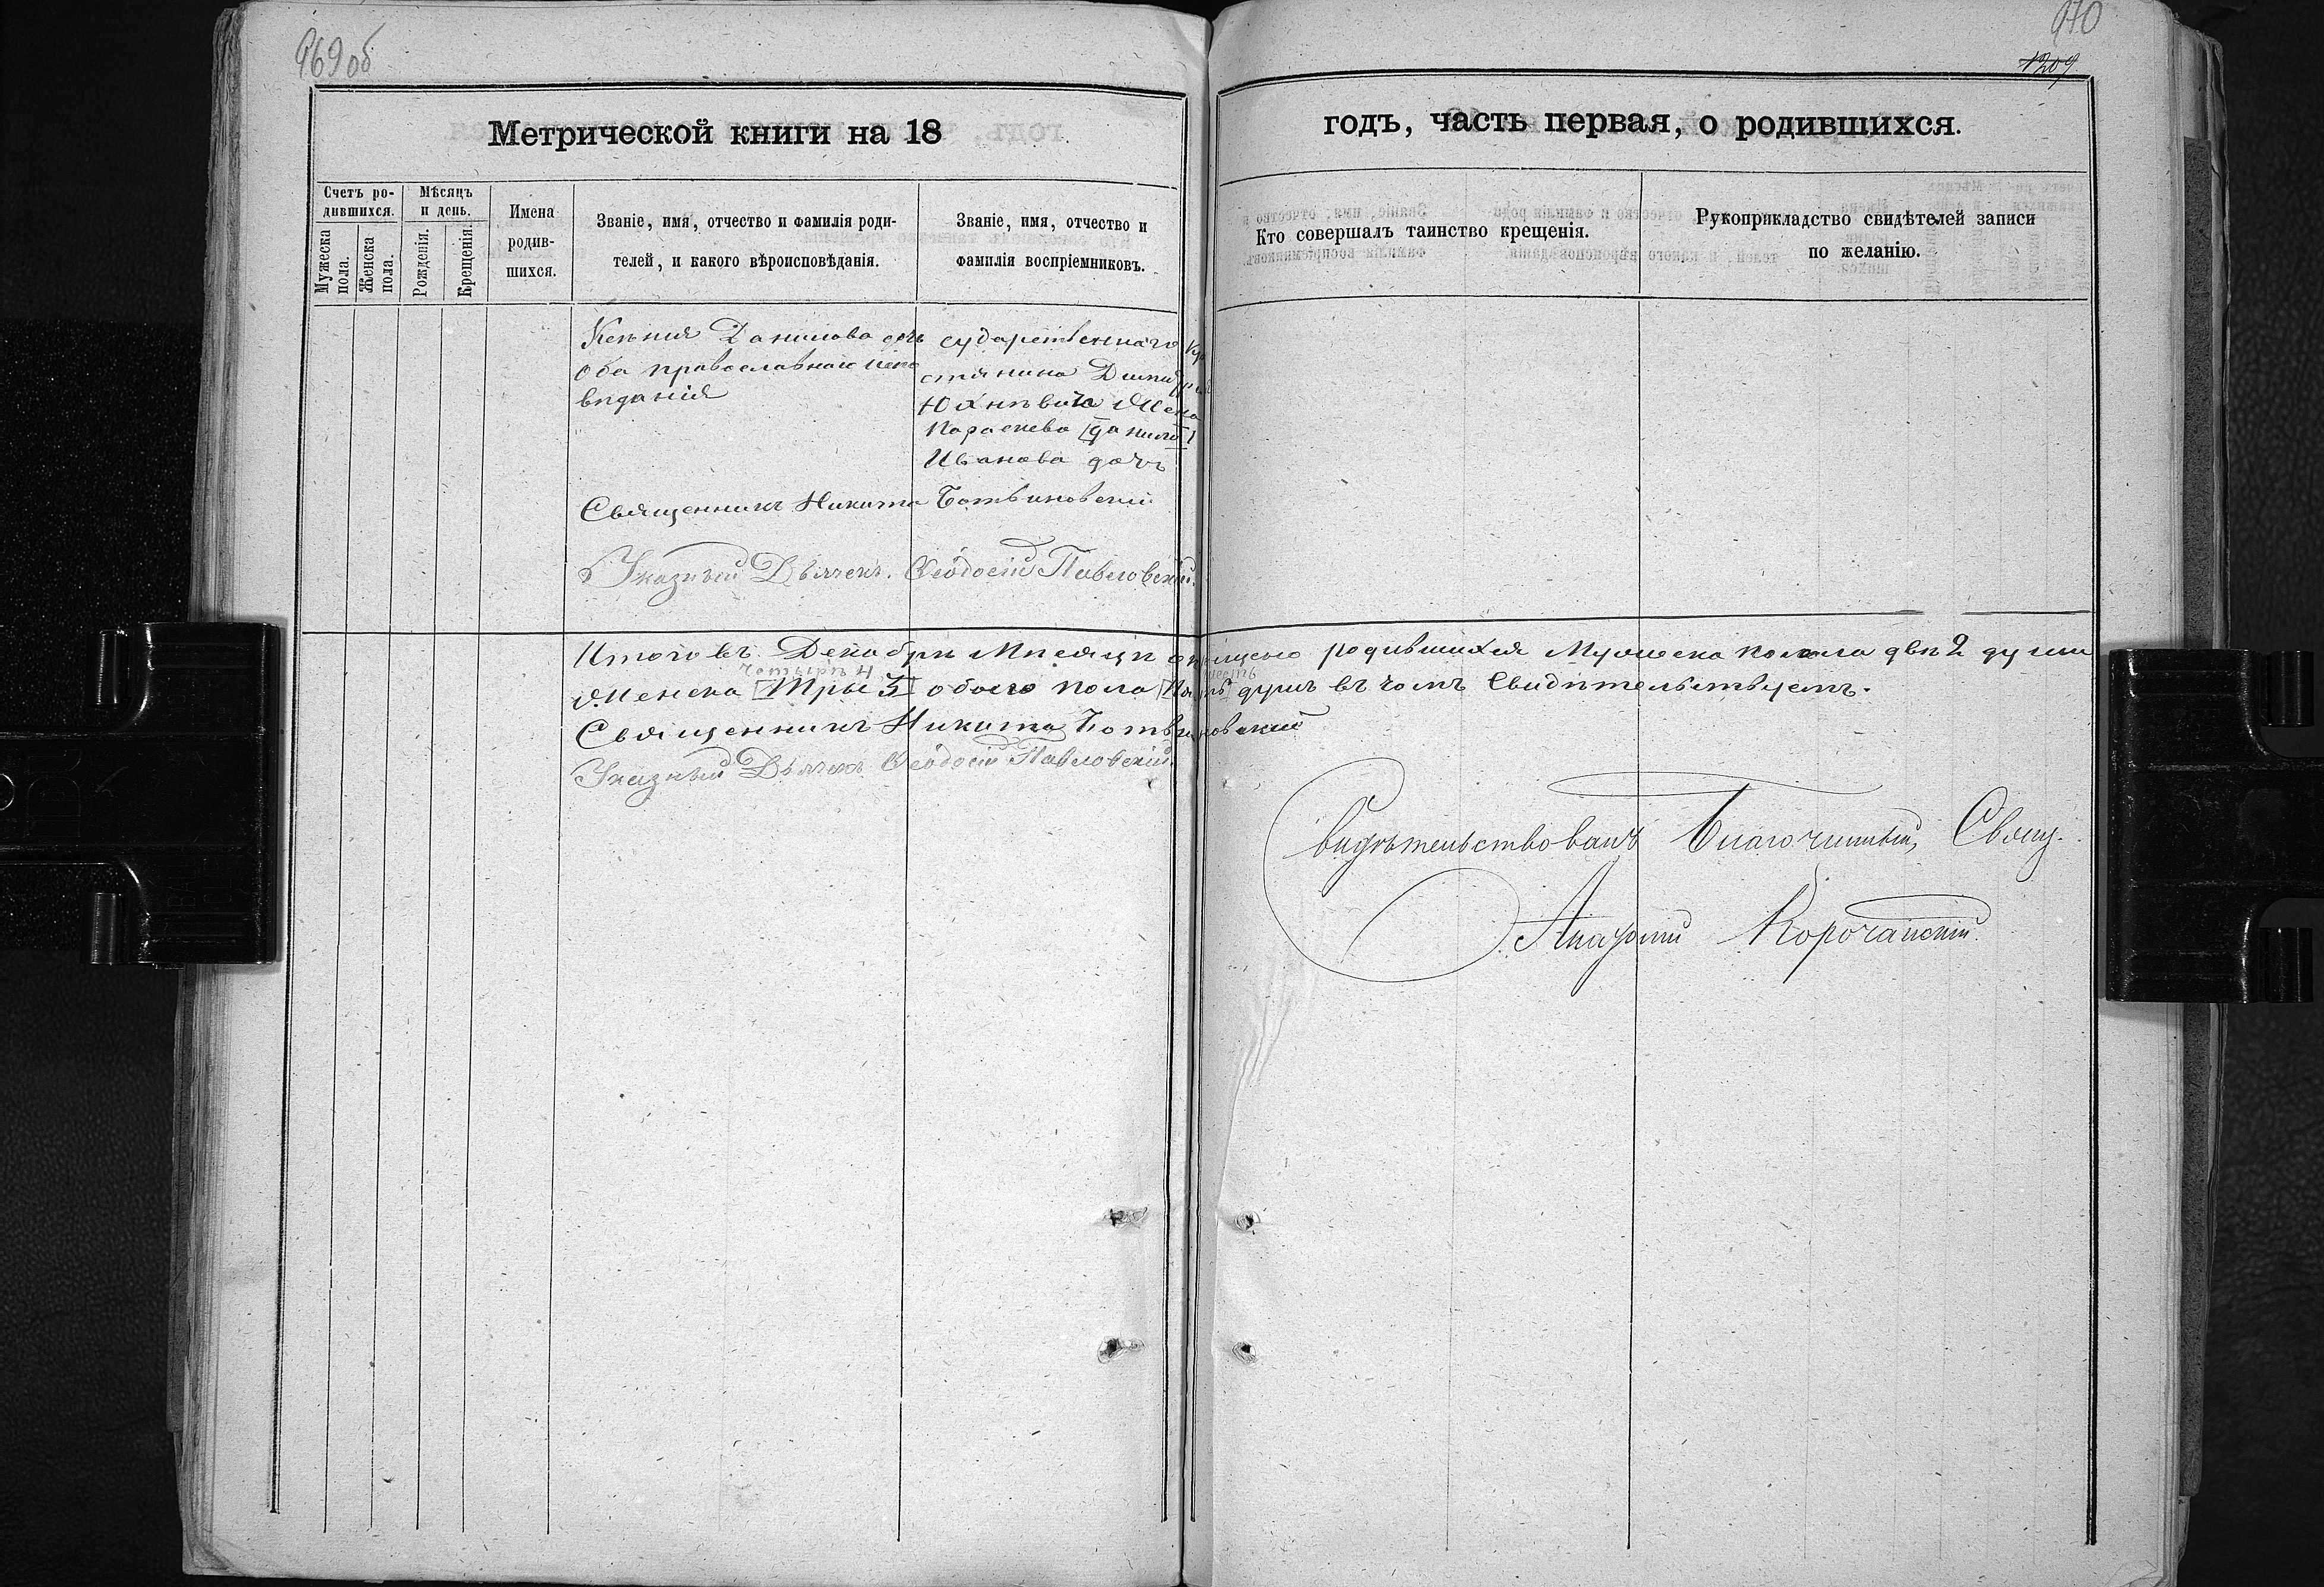 969 об
970
1209
Метрической книги на 18
годъ, часть первая, о родившихся.
Счетъ ро-
дившихся.
Мужеска
пола.
Женска
пола.
Мѣсяцъ
и день.
Рожденія.
Крещенія.
Имена
родив-
шихся.
Званіе, имя, отчество и фамилія роди-
телей, и какого вѣроисповѣданія.
Званіе, имя, отчество и
фамилія воспріемниковъ.
Кто совершалъ таинство крещенія.
Рукоприкладство свидѣтелей записи
по желанію.
Ксенія Данилова
оба православнаго испо
вѣданія
сударственнаго Кре
стянина Дмитрія
Жена
Параскева
Иванова дочь
Священникъ Никита Ботвиновскій
Указный Дьячекъ Ѳеодосій Павловскій.
Итого въ Декабрѣ Мѣсяцѣ родившихся Мужеска пола двѣ 2 души
четырѣ 4 шесть
Женска [Тры 3] обоего пола [Пять] душъ въ чомъ Свидѣтельствуемъ.
Священникъ Никита Ботвиновский
Указный Дьячекъ Ѳеодосій Павловскій.
Свидѣтельствовалъ Благочинный, Свящ.
Корочанскій.